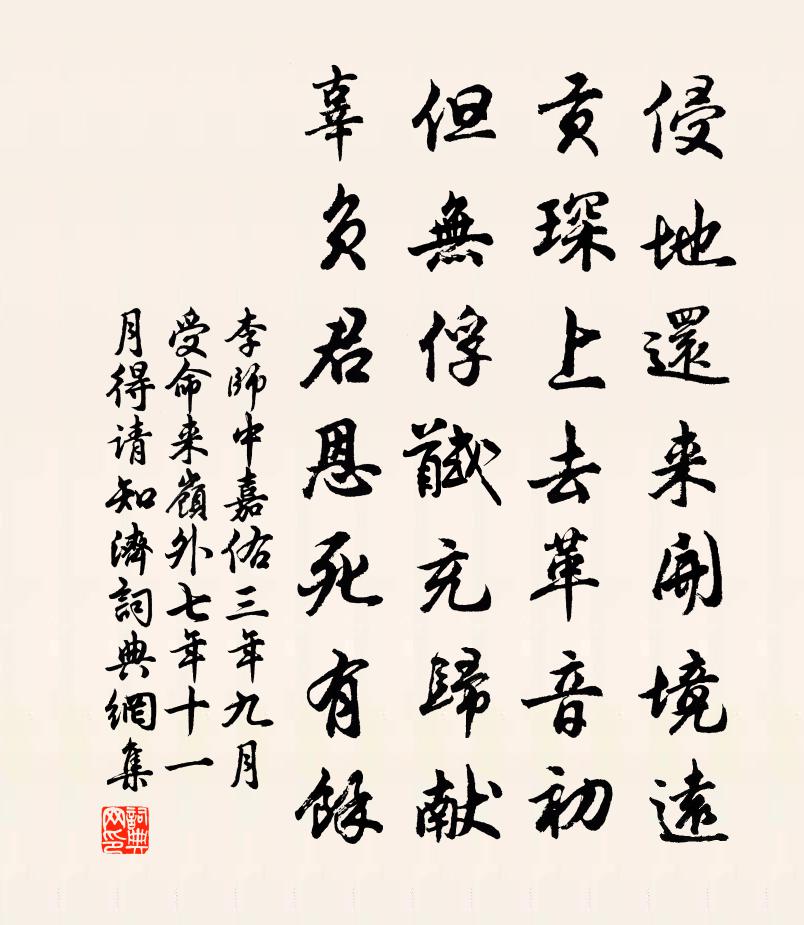 侵地還来開境遠
貢琛上去革音初
但無俘馘充歸献
辜負君恩死有餘
李師中嘉佑三年九月
受命来嶺外七年十一
月得请知濟詞典網集
詞典網印